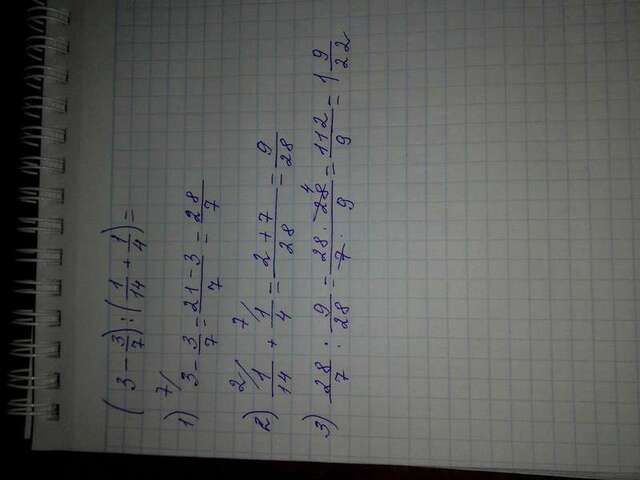 (3 - 3/7) : (1/14 + 1/4) =
1) 3 7/ - 3/7 = 21-3/7 = 28/7
2) 1 2/ /14 + 1 7/ /4 = 2+7/28 = 9/28
3) 28/7 : 9/28 = 28 · 28 4/7 · 9 = 112/9 = 1 9/22